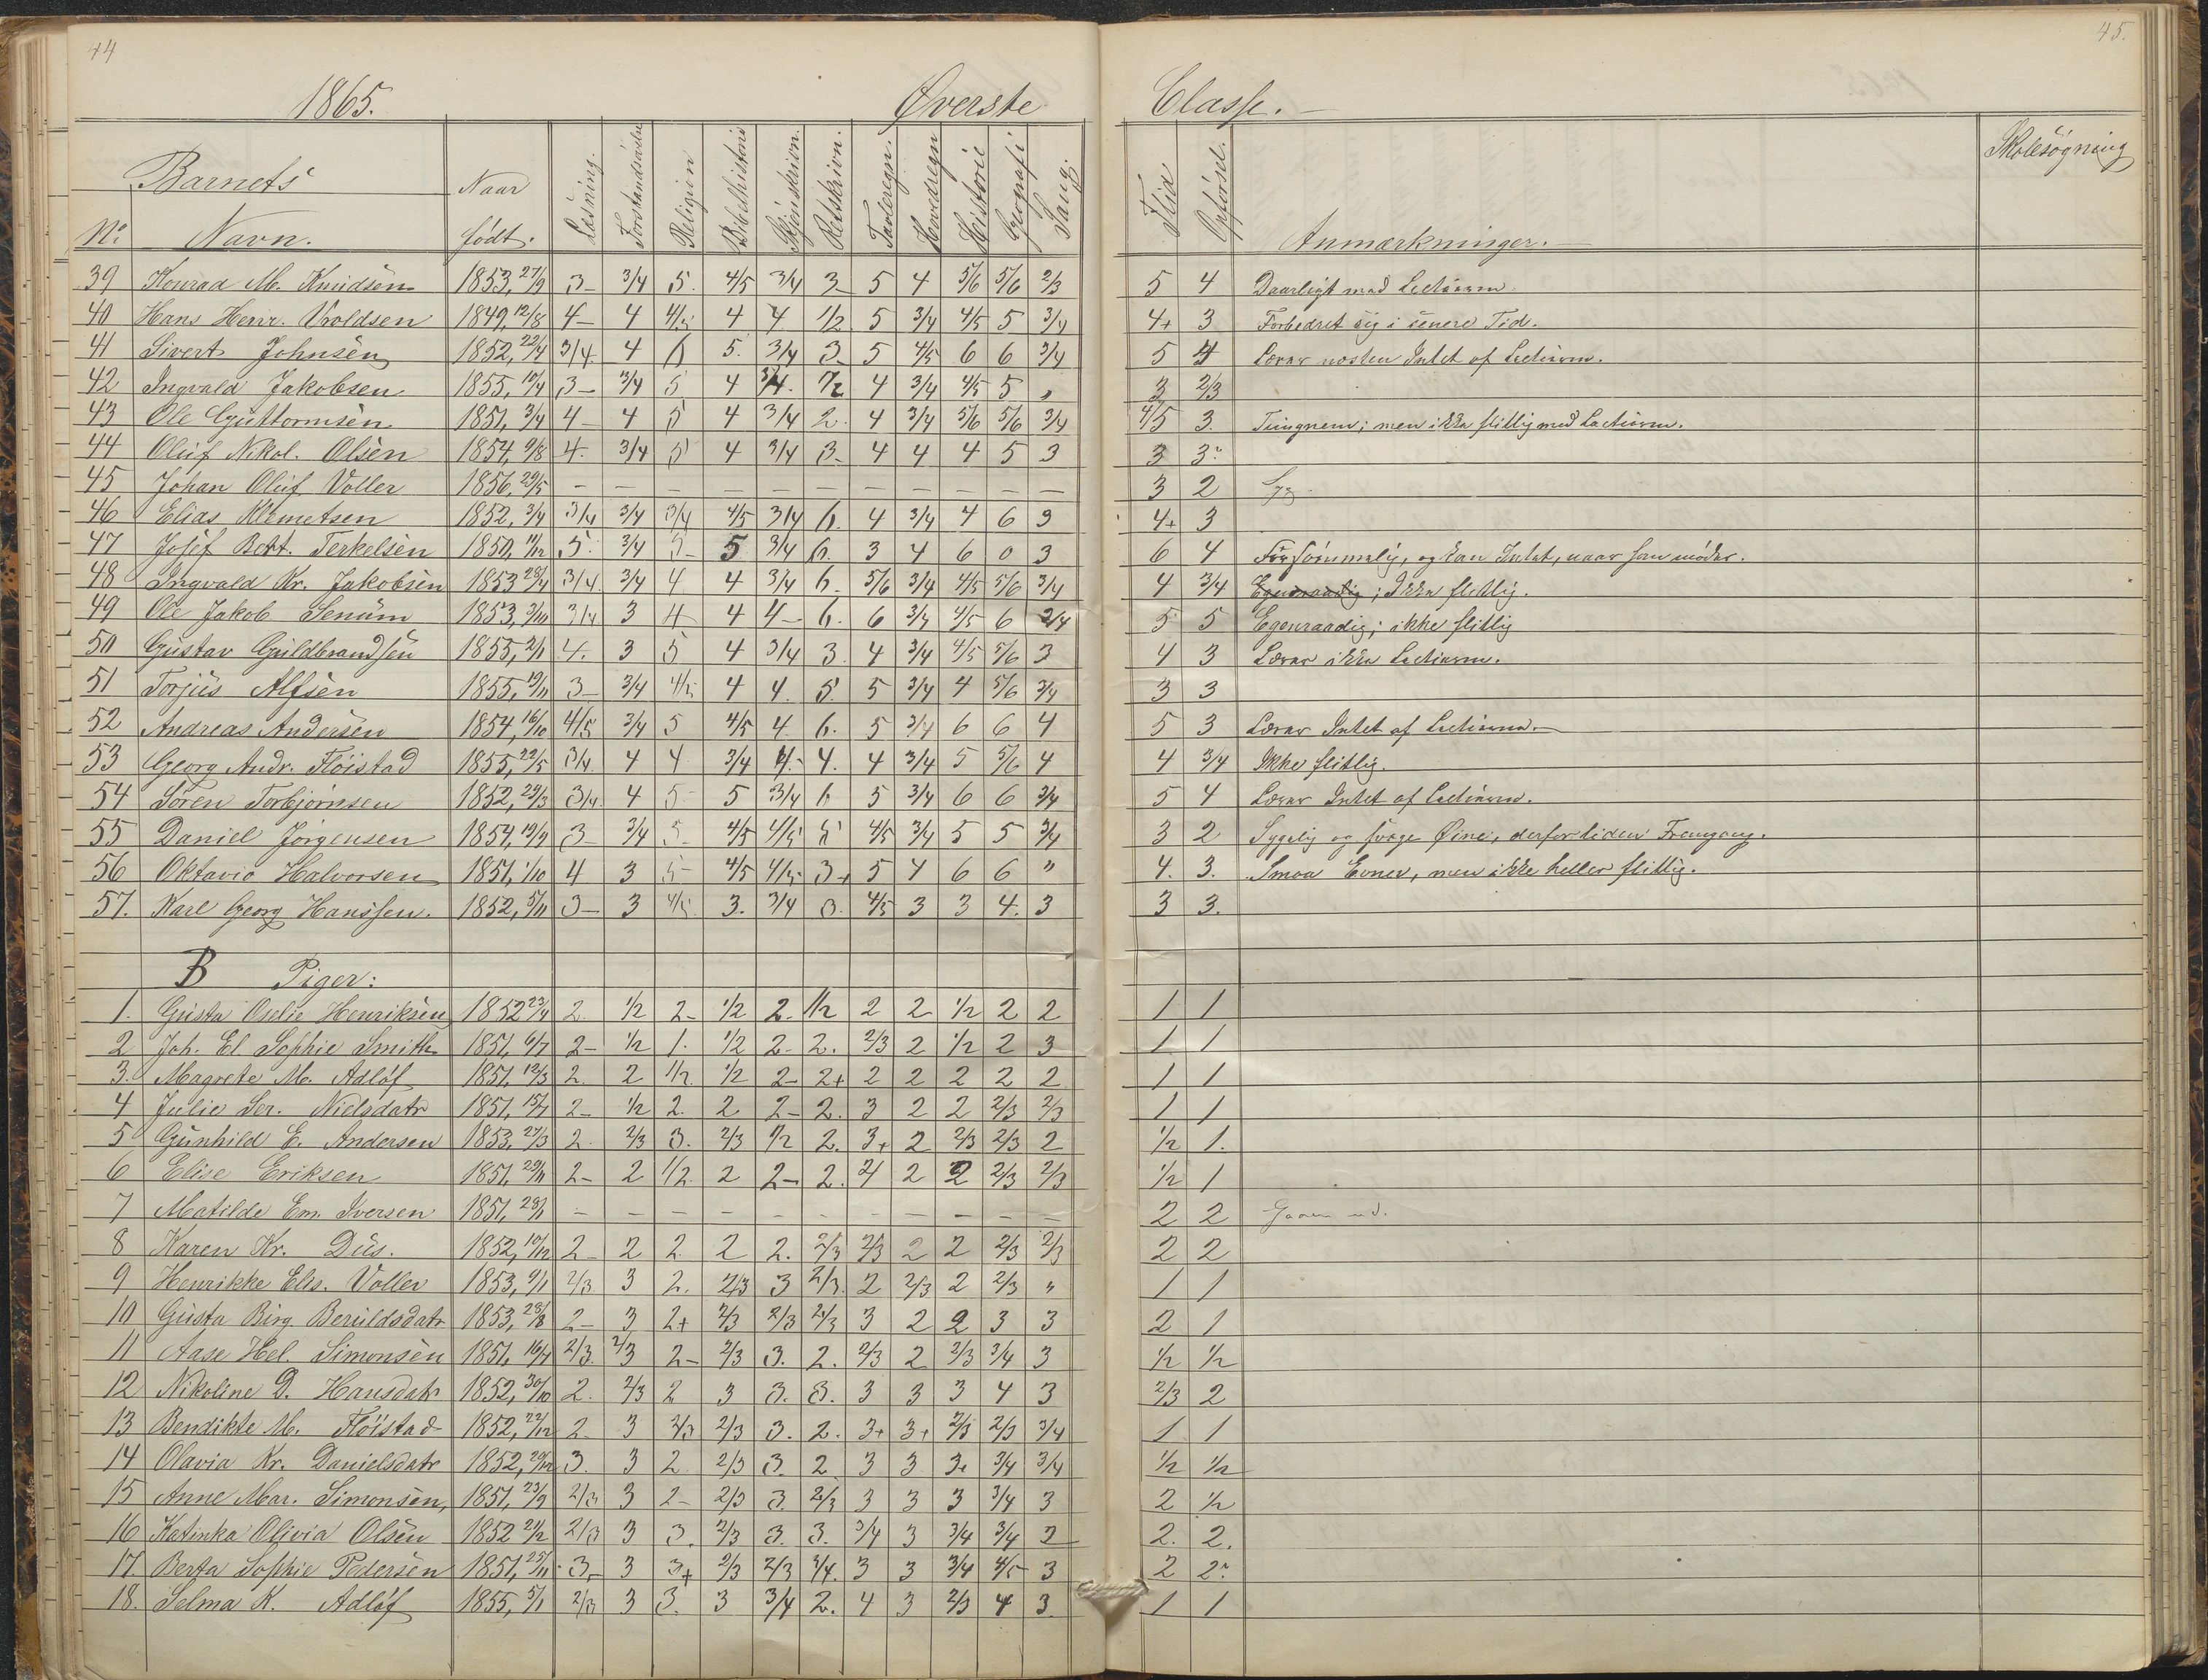 44
45.
1865. Øverste Classe.
Barnets Naar Læsning. Forstandsøvelse Religion Bibelhistorie Skjønskrivn. Retskrivn. Tavleregn. Hovedregn Historie Geografi Sang. Flid Opførsel. Skolesøgning
No. Navn. født. Anmærkninger.
39 Konrad M. Knudsen 1853, 27/9 3- 3/4 5. 4/5 3/4 3- 5 4 5/6 5/6 2/3 5 4 Daarligt med Lectierne.
40 Hans Henr. Vroldsen 1849, 12/8 4- 4 4/5 4 4 1/2 5 3/4 4/5 5 3/4 4+ 3 Forbedret sig i senere Tid.
41 Sivert Johnsen 1852, 22/4 3/4 4 6 5. 3/4 3- 5 4/5 6 6 3/4 5 4 Lærer næsten Intet af Lectierne.
42 Ingvald Jakobsen 1855, 10/4 3- 3/4 5 4 3/4. 1/2 4 3/4 4/5 5 „ 3 2/3
43 Ole Guttormsen 1851, 3/4 4- 4 5 4 3/4 2. 4 3/4 5/6 5/6 3/4 4/5 3. Tungnem; men ikke flittig med Lectierne.
44 Oluf Nikol. Olsen 1854, 9/8 4. 3/4 5 4 3/4 3- 4 4 4 5 3 3 3?
45 Johan Oluf Voller 1856, 29/5 - - - - - - - - - - - 3 2 Syg.
46 Elias Klemetsen 1852, 3/4 3/4 3/4 3/4 4/5 3/4 6. 4 3/4 4 6 3 4+ 3
47 Josef Bert. Terkelsen 1850, 11/12 5. 3/4 5- 5 3/4 6. 3 4 6 0 3 6 4 Forsømmelig, og kan Intet, naar han møder.
48 Ingvald Kr. Jakobsen 1853 28/4 3/4 3/4 4 4 3/4 6. 5/6 3/4 4/5 5/6 3/4 4 3/4 Egenraadig; Ikke flittig.
49 Ole Jakob Senum 1853, 9/10 3/4 3 4 4 4- 6. 6 3/4 4/5 6 3/4 5 5 Egenraadig; ikke flittig
50 Gustav Guldbrandsen 1855, 2/1 4. 3 5 4 3/4 3. 4 3/4 4/5 5/6 3 4 3 Lærer ikke Lectierne.
51 Torjus Alfsen 1855, 19/11 3- 3/4 4/5 4 4. 5. 5 3/4 4 5/6 3/4 3 3
52 Andreas Andersen 1854, 16/10 4/5 3/4 5 4/5 4. 6. 5 3/4 6 6 4 5 3 Lærer Intet af Lectierne.
53 Georg Andr. Fløistad 1855, 22/5 3/4 4 4. 3/4 4.- 4. 4 3/4 5 5/6 4 4 3/4 Ikke flittig.
54 Søren Torbjørnsen 1852, 29/3 3/4 4 5- 5 3/4 6 5 3/4 6 6 3/4 5 4 Lærer Intet af Lectierne.
55 Daniel Jørgensen 1854, 19/9 3- 3/4 5- 4/5 4/5 5 4/5 3/4 5 5 3/4 3 2 Sygelig og svage Øine, derfor liden Fremgang.
56 Oktavio Halvorsen 1851, 1/10 4 3 5- 4/5 4/5 3+ 5 4 6 6 " 4. 3. Smaa Evner, men ikke heller flittig.
57. Karl Georg Hanssen. 1852, 5/11 3- 3 4/5. 3. 3/4 3. 4/5 3 3 4. 3 3 3.
B Piger:
1. Gusta Oselie Henriksen 1852 23/4 2. 1/2 2- 1/2 2- 1/2 2 2 1/2 2 2 1 1
2 Joh. El Sophie Smith 1851, 6/7 2- 1/2 1. 1/2 2- 2. 2/3 2 1/2 2 3 1 1
3. Magrete M. Adløf 1851, 12/3 2. 2 1/2. 1/2 2- 2+ 2 2 2 2 2 1 1
4 Julie Ser. Nielsdatr 1851, 15/7 2- 1/2 2. 2 2- 2. 3 2 2 2/3 2/3 1 1
5 Gunhild E. Andersen 1853, 27/3 2. 2/3 3. 2/3 1/2 2. 3+ 2 2/3 2/3 2 1/2 1.
6 Elise Eriksen 1851, 29/11 2- 2 1/2. 2 2- 2. 2/ 2 2 2/3 2/3 1/2 1
7 Matilde Em. Iversen 1851, 28/1 - - - - - - - - - - - 2 2 Gaaen ud.
8 Karen Kr. Dus. 1852, 10/12 2- 2 2. 2 2. 2/3 2/3 2 2 2/3 2/3 2 2
9 Henrikke Elis. Voller 1853, 9/1 2/3 3 2. 2/3 3 2/3. 2 2/3 2 2/3 " 1 1
10 Gusta Birg Beruldsdatr 1853, 28/8 2- 3 2+ 2/3 2/3 2/3 3 2 2 3 3 2 1
11 Aase Hel. Simonsen 1851, 16/4 2/3. 2/3 2- 2/3 3. 2. 2/3 2 2/3 3/4 3 1/2 1/2
12 Nikoline D. Hansdatr 1852, 30/10 2. 2/3 2 3 3. 3. 3 3 3 4 3 2/3 2
13 Bendikte M. Fløistad 1852, 22/12 2- 3 2/3 2/3 3. 2. 3+ 3+ 2/3 2/3 3/4 1 1
14 Olavia Kr. Danielsdatr 1852, 20/12 3. 3 2. 2/3 3. 2. 3 3 3+ 3/4 3/4 1/2 1/2
15 Anne Mar. Simonsen, 1851, 23/9 2/3 3 2- 2/3 3. 2/3 3 3 3 3/4 3 2 1/2
16 Katinka Olivia Olsen 1852 2/12 2/3 3 3. 2/3 3. 3. 3/4 3 3/4 3/4 3 2. 2.
17. Berta Sophie Pedersen 1851, 25/11 3- 3 3+ 2/3 2/3 3/4. 3 3 3/4 4/5 3 2 2?
18. Selma K. Adløf 1855, 5/1 2/3 3 3. 3 3/4 2. 4 3 2/3 4 3. 1 1